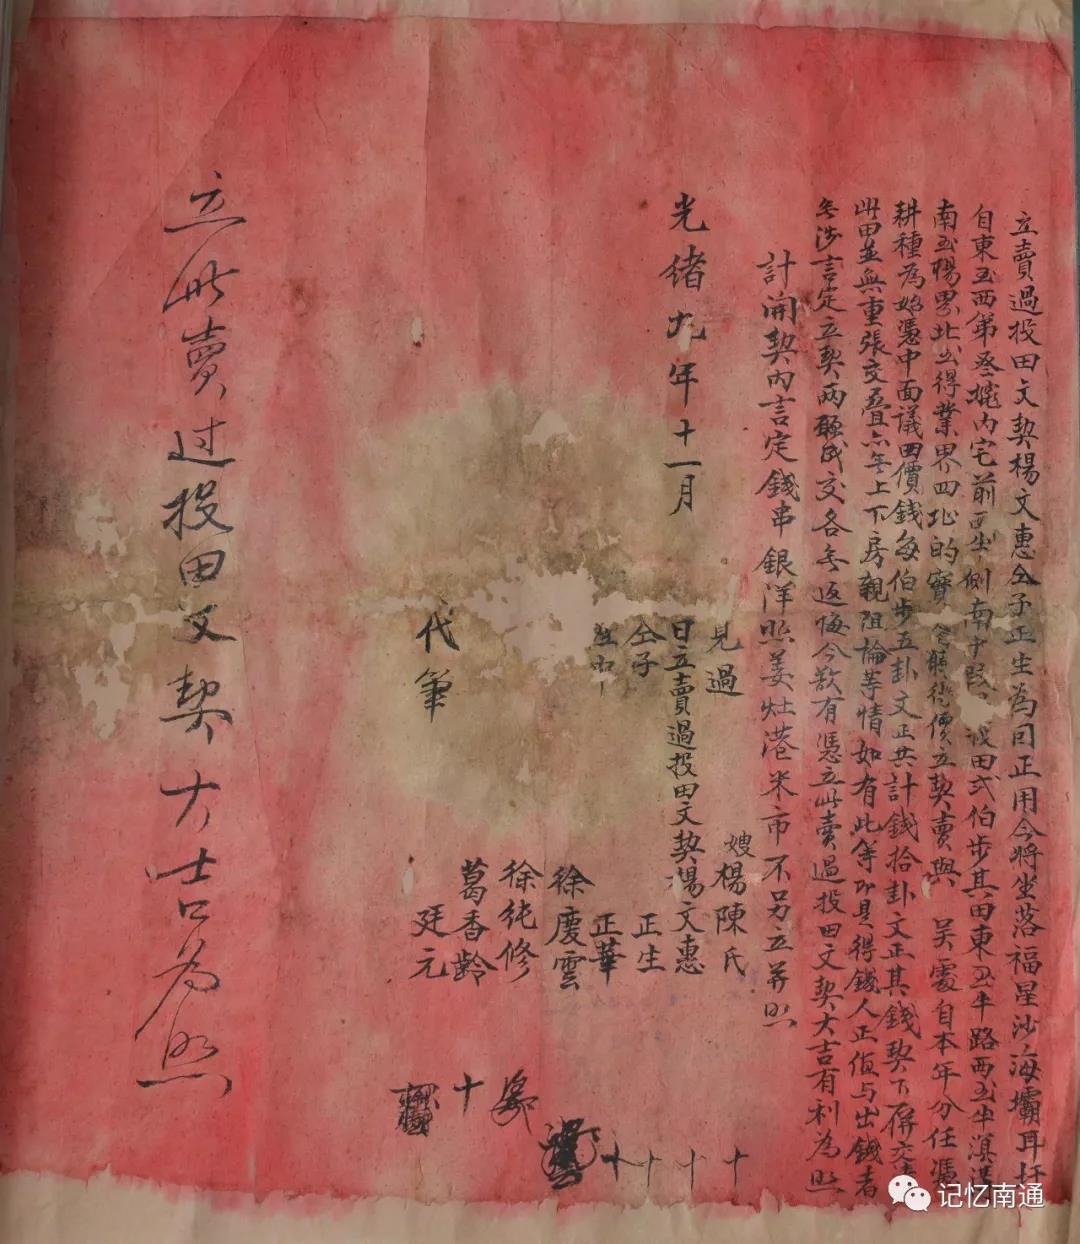 立賣過投田文契楊文惠仝子正生為因正用今將坐落福星沙海壩耳圩
自東至西第叁埦內宅前 側南 投田弍伯步其田東至半路西至半滇
南至楊界北至得業界四址的實 立契賣與 吴處自本年分任憑
耕種為始憑中面議田價錢每伯步五卦文正共計錢拾卦文正其錢契下併交
此田並無重張交叠亦無上下房親阻論等情如有此等即具得錢人正值与出錢者
無涉言定立契兩願成交各無返悔今欲有憑立此賣過投田文契大吉有利為照
計開契內言定錢串銀洋照姜灶港米市不另立并照
見過 嫂楊陳氏 十
光绪九年十一月 日立賣過投田文契楊文惠 十
仝子 正生 十
正華 十
徐慶雲
徐純修
葛香龄 十
代筆 廷元
立此賣过投田文契大吉為照
记忆南通